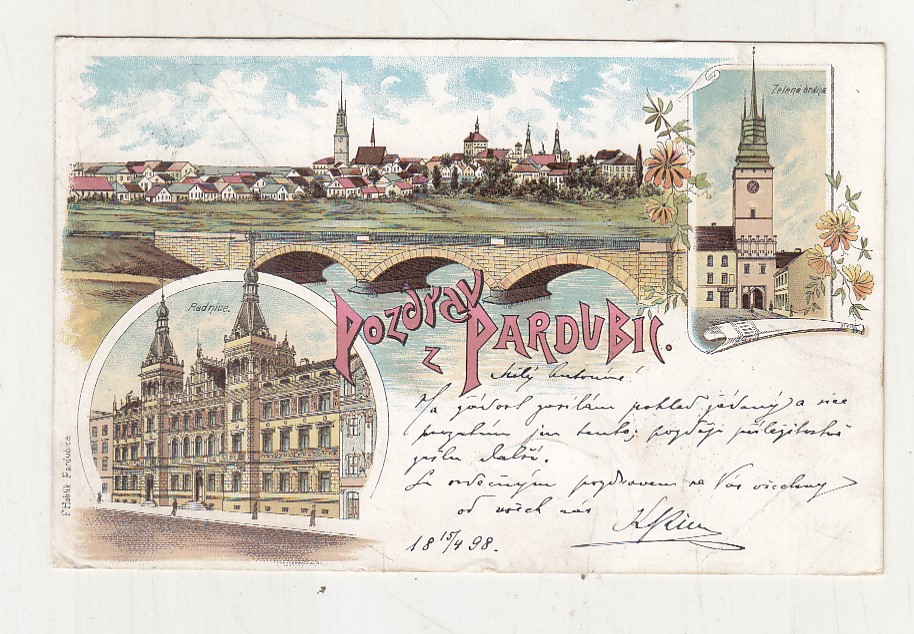 Zelená brána
Radnice.
Pozdrav
z Pardubic.
Milý Antoníne!
Na žádost posílám pohled žádaný a více
prozatím jen tento, později příležitostně
pošlu další.
Se srdečným pozdravem na Vás všechny
od všech nás
18 15/4 98.
F. Hoblík Pardubice